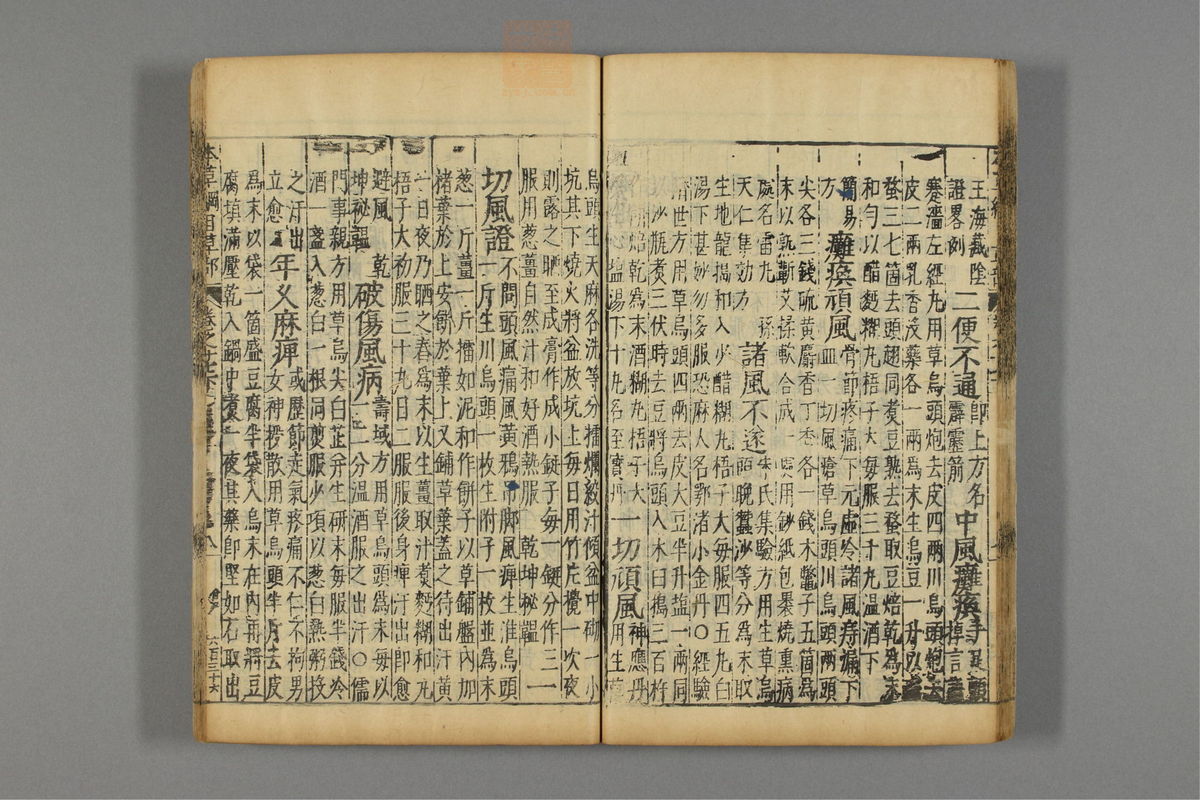 王海藏陰
證畧例 二便不通 即上方名霹靂箭 中風癱瘓 手足顫掉言語
蹇澀左經丸用草烏頭炮去皮四兩川烏頭炮去
皮二兩乳香没藥各一兩為末生烏豆一升以
蝥三七箇去頭翅同煮豆熟去蝥取豆焙乾為末
和匀以醋麪糊丸梧子大每服三十丸温酒下
簡易方 癱瘓頑風 骨節疼痛下元虛冷諸風痔漏下
血一切風瘡草烏頭川烏頭兩頭
尖各三錢硫黄麝香丁香各一錢木鱉子五箇為
末以熟蘄艾揉軟合成一處用鈔紙包裹燒熏病
處名雷丸孫
天仁集効方 諸風不遂 宋氏集驗方用生草烏
頭晚蠶沙等分為末取
生地龍搗和入少醋糊丸梧子大每服四五丸白
湯下甚妙勿多服恐麻人名鄂渚小金丹○經驗
濟世方用草烏頭四兩去皮大豆半升塩一兩同
沙瓶煮三伏時去豆將烏頭入木臼搗三百杵
焙乾為末酒糊丸梧子大
塩湯下十丸名至寶丹 一切頑風 神應丹
用生草
烏頭生天麻各洗等分擂爛絞汁傾盆中砌一小
坑其下燒火將盆放坑上每日用竹片攪一次夜
則露之晒至成膏作成小鋌子每一鋌分作三
服用葱薑自然汁和好酒熱服乾坤秘韞 一
切風證 不問頭風痛風黄鴉吊脚風痺生淮烏頭
一斤生川烏頭一枚生附子一枚並為末
葱一斤薑一斤擂如泥和作餅子以草鋪盤内加
楮葉於上安餅於葉上又鋪草葉蓋之待出汗黄
一日夜乃晒之舂為末以生薑取汁煮麪糊和丸
梧子大初服三十丸日二服服後身痺汗出即愈
避風乾
坤秘韞 破傷風病 壽域方用草烏頭為末每以
一二分温酒服之出汗○儒
門事親方用草烏尖白芷并生研末每服半錢冷
酒一盞入葱白一根同煎服少項以葱白熱粥投
之汗出
立愈 年久麻痺 或歷節走氣疼痛不仁不拘男
女神授散用草烏頭半斤去皮
為末以袋一箇盛豆腐半袋入烏末在内再將豆
腐填滿壓乾入鍋中煮一夜其藥即堅如石取出
本草綱目草部 卷之十七下 六百三十六